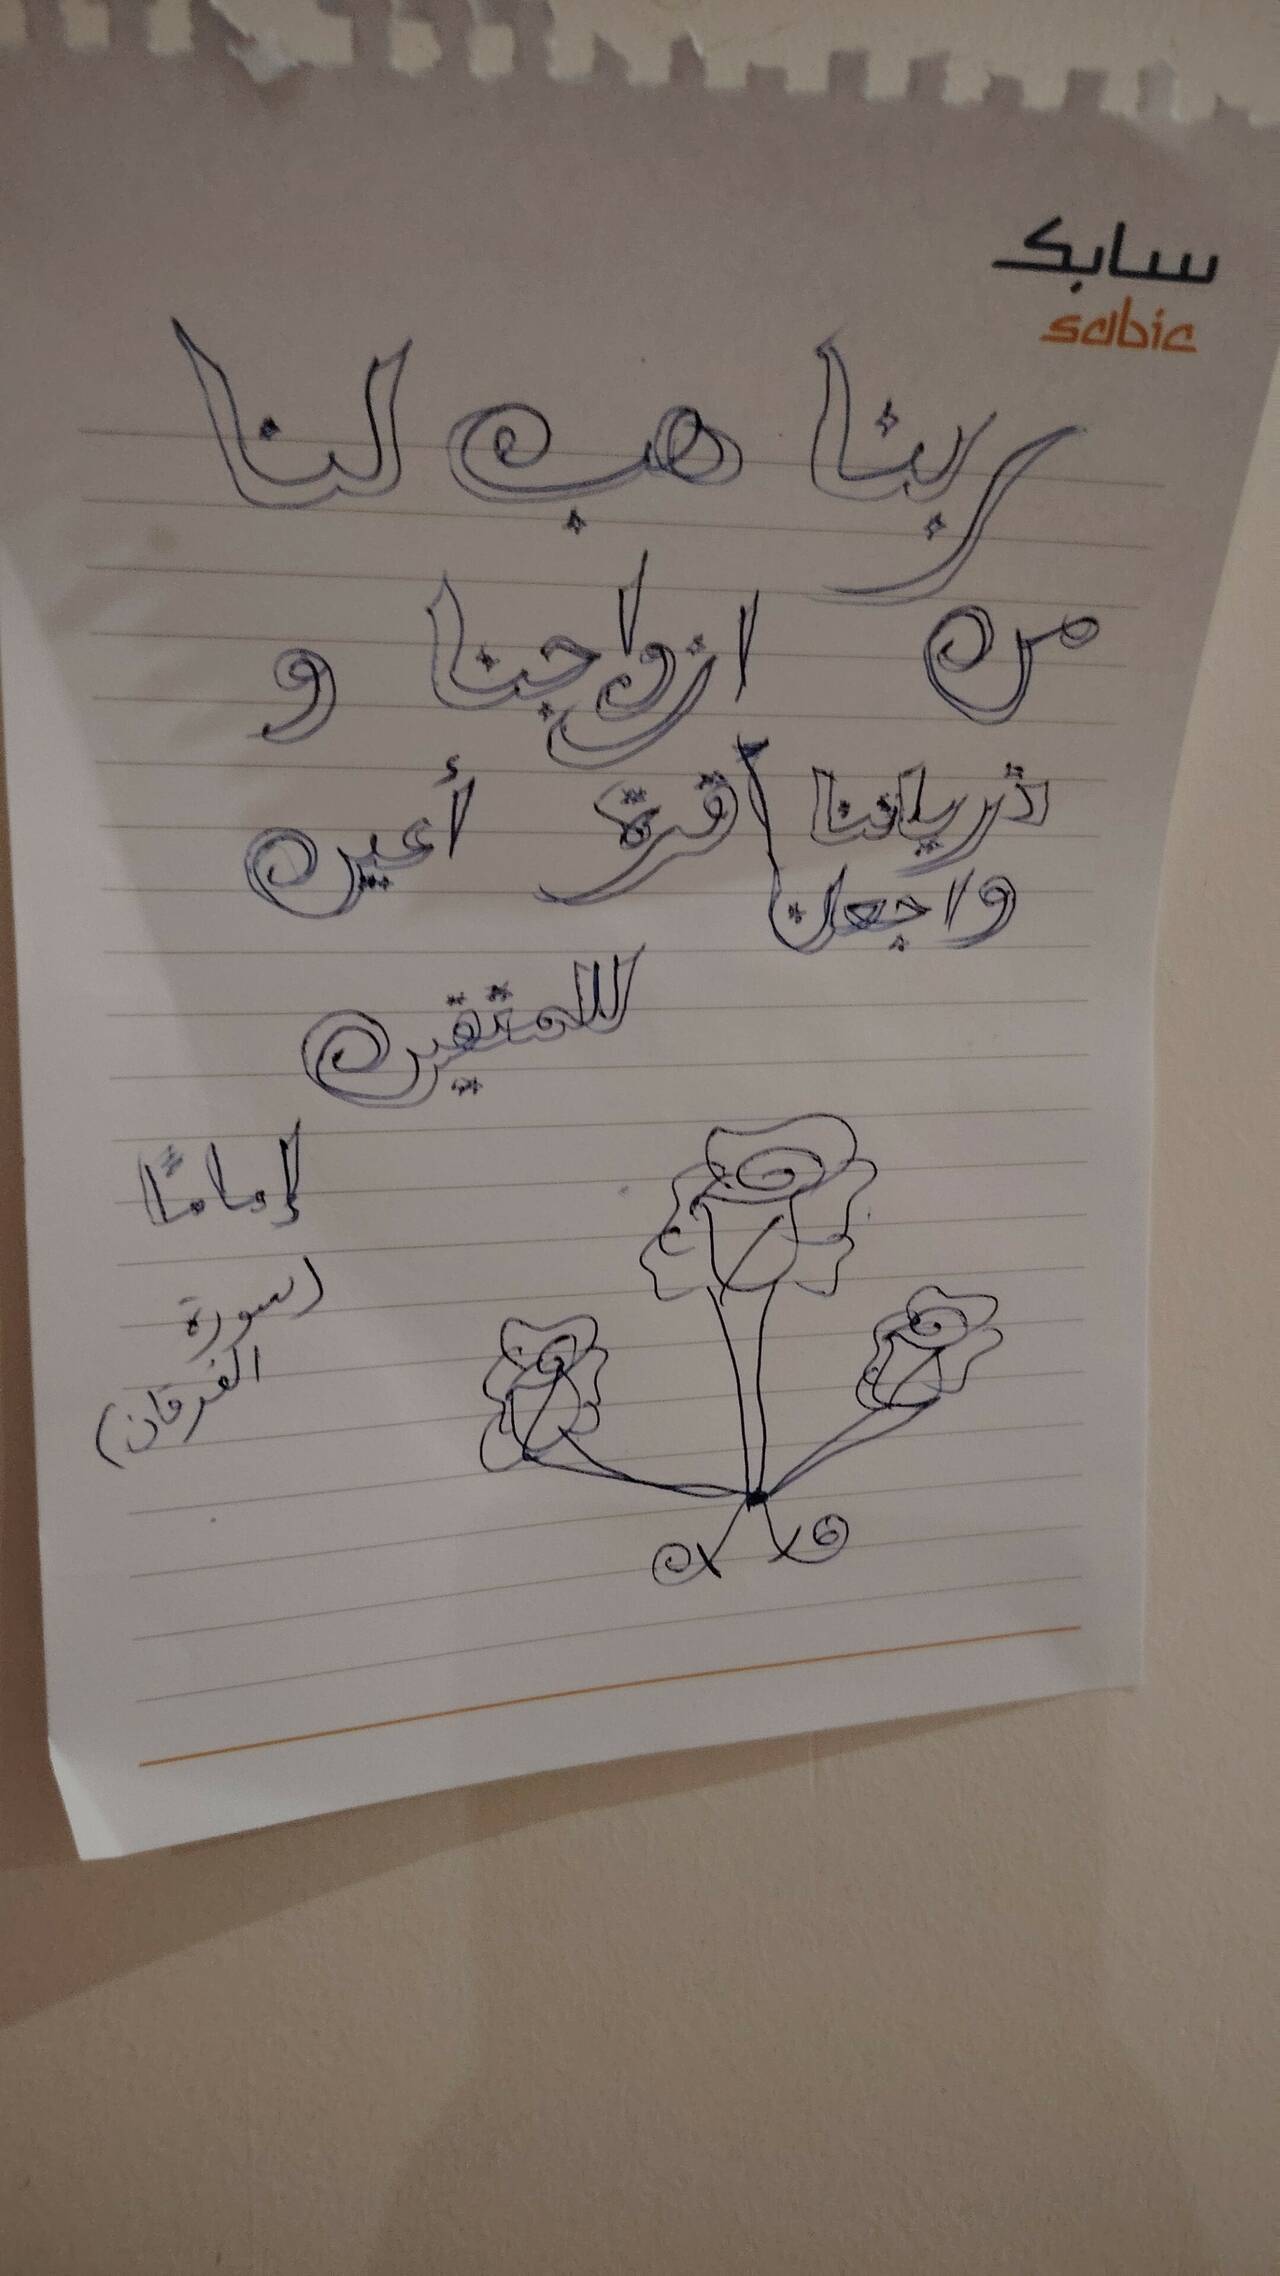 سابك
sabic
ربنا هب لنا
من ازواجنا و
ذرياتنا قرة أعين
واجعلنا
للمتقين
إمامًا
(سورة
الفرقان)